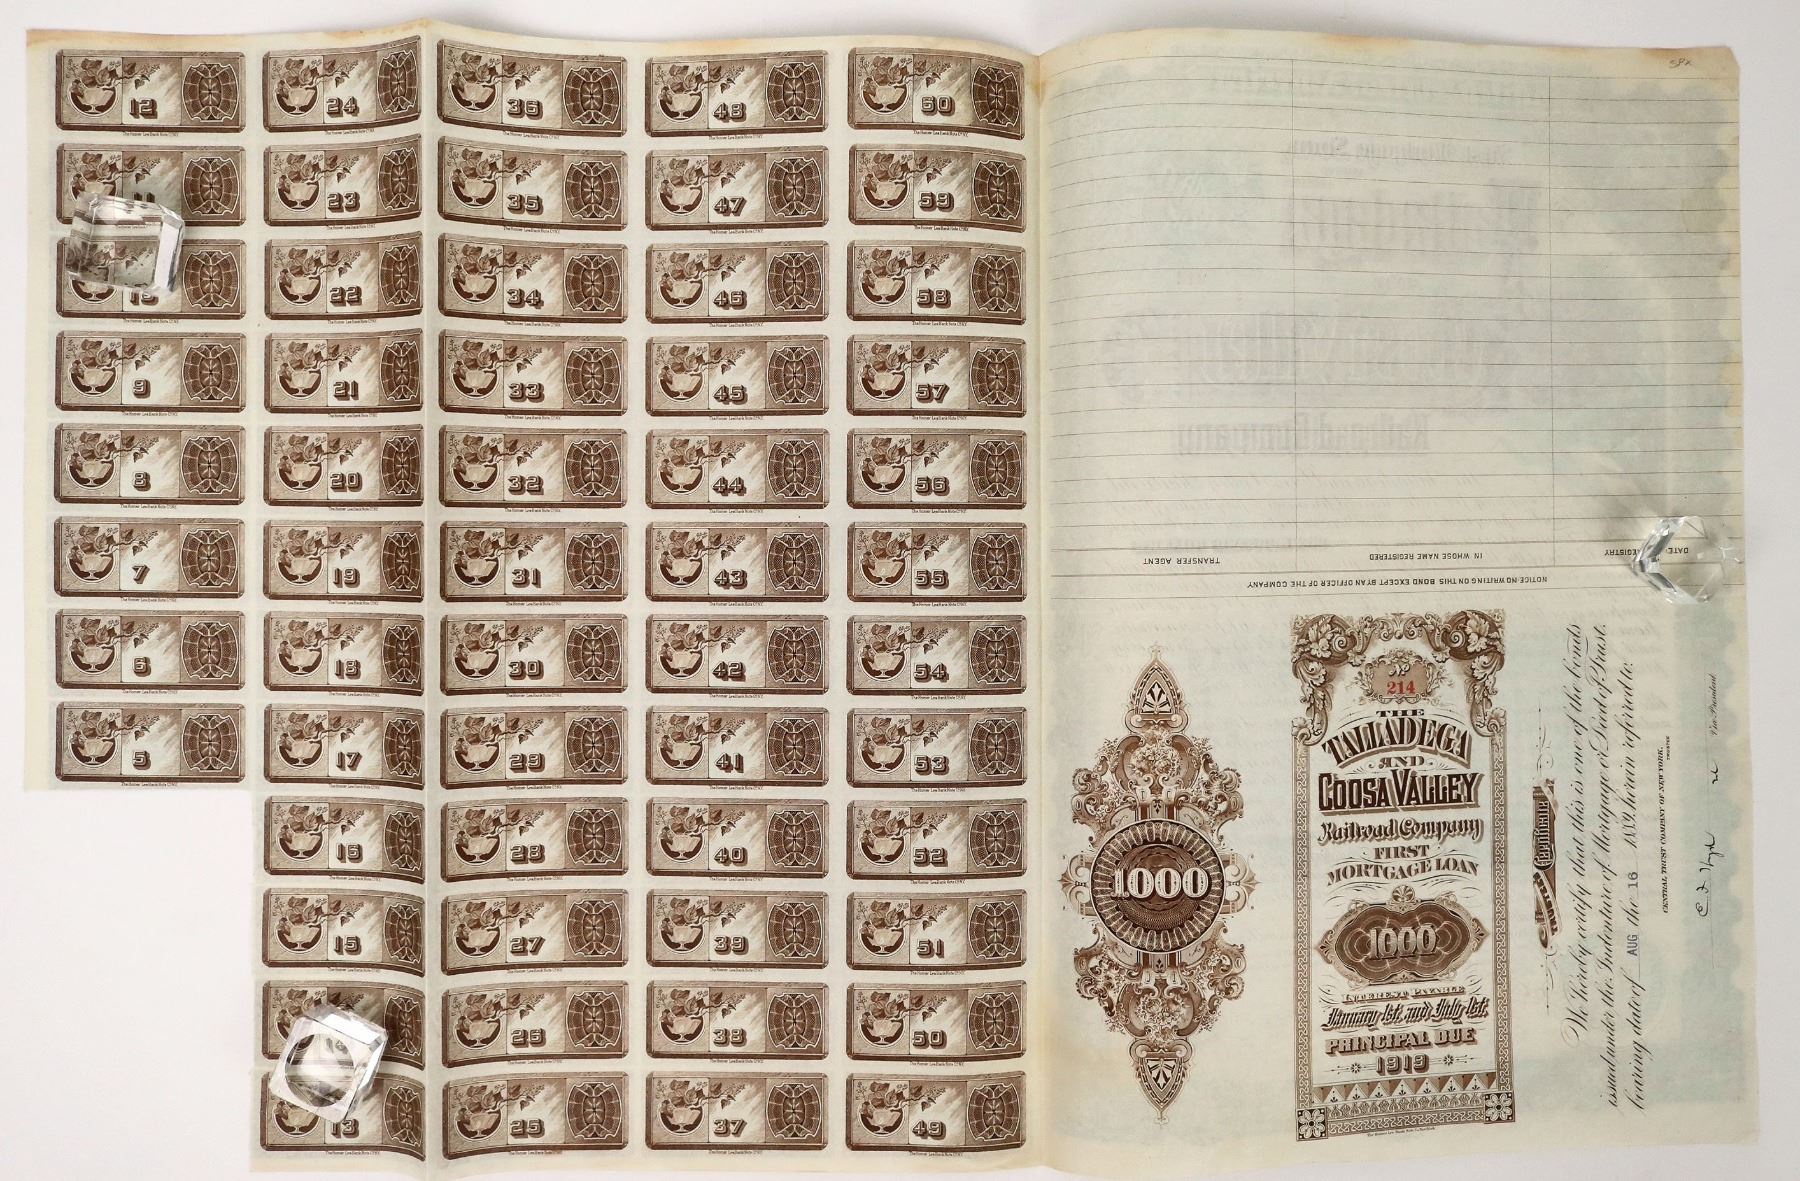 12 24 36 48 60
23 35 47 59
22 34 46 58
9 21 33 45 57
8 20 32 44 56
7 19 31 43 55
6 18 30 42 54
5 17 29 41 53
16 28 40 52
15 27 39 51
26 38 50
13 25 37 49
The Homer Lee Bank Note Co. N.Y.
58x
TRANSFER AGENT
IN WHOSE NAME REGISTERED
DATE REGISTRY
NOTICE: NO WRITING ON THIS BOND EXCEPT BY AN OFFICER OF THE COMPANY
1000
No
214
THE
TALLADEGA
AND
COOSA VALLEY
Railroad Company
FIRST
MORTGAGE LOAN
1000
INTEREST PAYABLE
January 1st. and July 1st.
PRINCIPAL DUE
1919
Trustees Certificate
We hereby certify that this is one of the bonds
issued under the Indenture of Mortgage or Deed of Trust.
bearing date of AUG the 16 1889, herein referred to:
CENTRAL TRUST COMPANY OF NEW YORK.
TRUSTEE
Vice-President